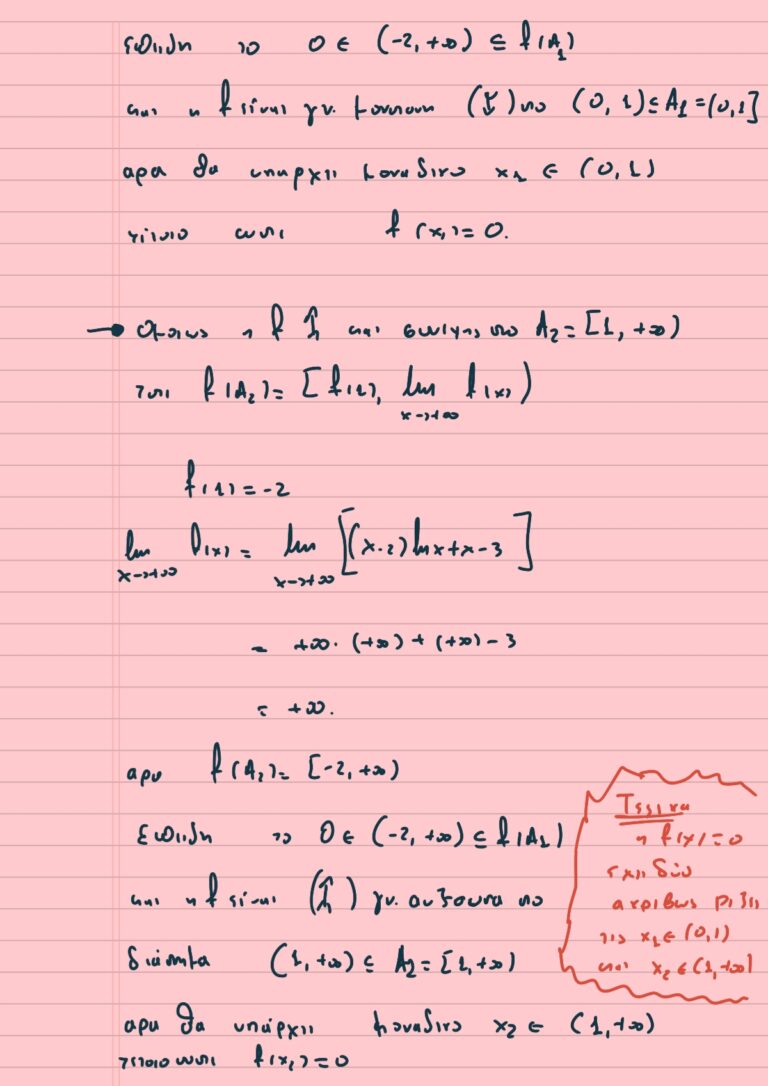 επειδη το 0 ∈ (-2, +∞) ⊆ f(A₁)
και η f ειναι γν. μονοτονη (↓) στο (0, 1) ⊆ A₁ = (0, 1]
αρα θα υπαρχει μοναδικο x₁ ∈ (0, 1)
τετοιο ωστε f(x₁) = 0.
→ Ομοιως η f ↑ και συνεχης στο A₂ = [1, +∞)
τοτε f(A₂) = [f(1), lim x→+∞ f(x))
f(1) = -2
lim x→+∞ f(x) = lim x→+∞ [(x-2)lnx+x-3]
= +∞·(+∞) + (+∞) - 3
= +∞.
αρα f(A₂) = [-2, +∞)
Επειδη το 0 ∈ (-2, +∞) ⊆ f(A₂)
και η f ειναι (↑) γν. αυξουσα στο
διάστημα (1, +∞) ⊆ A₂ = [1, +∞)
αρα θα υπάρχει μοναδικο x₂ ∈ (1, +∞)
τετοιο ωστε f(x₂) = 0
Τελικα
η f(x) = 0
εχει δύο
ακριβως ριζες
τις x₁ ∈ (0, 1)
και x₂ ∈ (1, +∞)